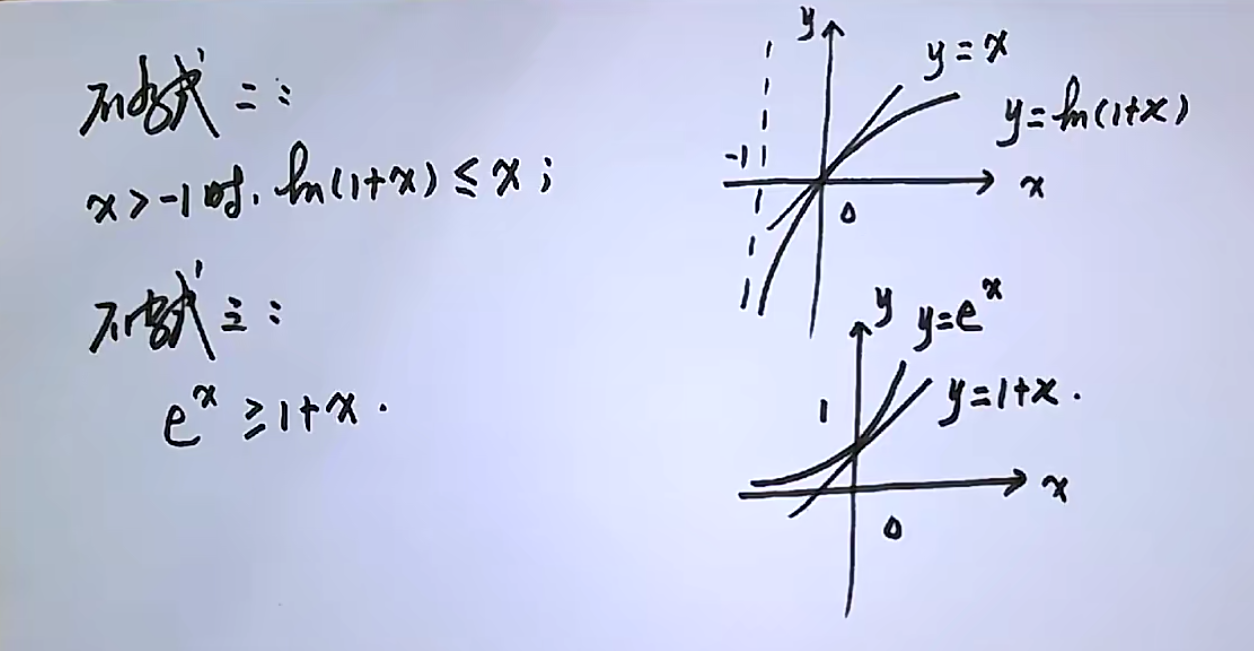 不等式二:
x>-1时, ln(1+x)≤x;
不等式三:
e^x ≥1+x.
y
y=x
y=ln(1+x)
-1
x
0
y
y=e^x
1
y=1+x.
x
0